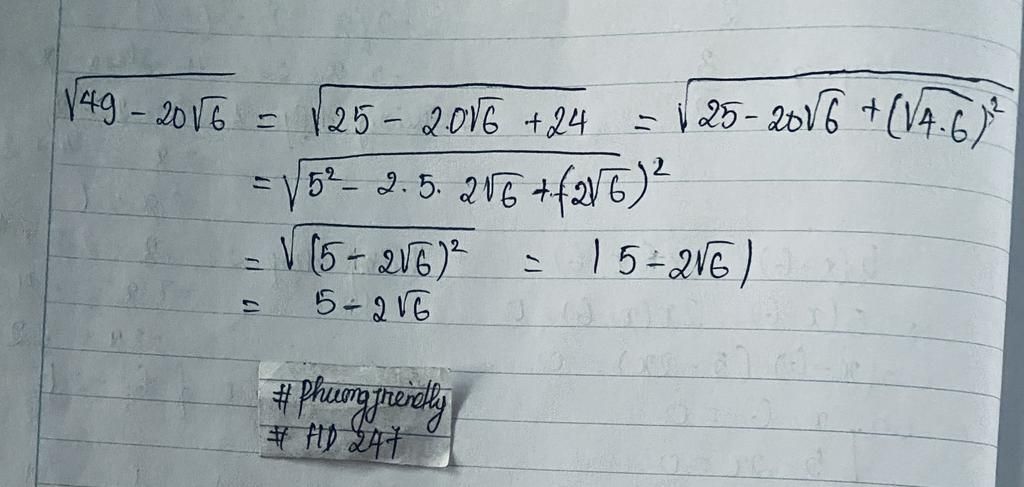 √49 - 20√6 = √25 - 20√6 + 24 = √25 - 20√6 + (√4.6)²
= √5² - 2. 5. 2√6 + (2√6)²
= √(5 - 2√6)² = |5 - 2√6|
= 5 - 2√6
# Phuongfriendly
# HD 247